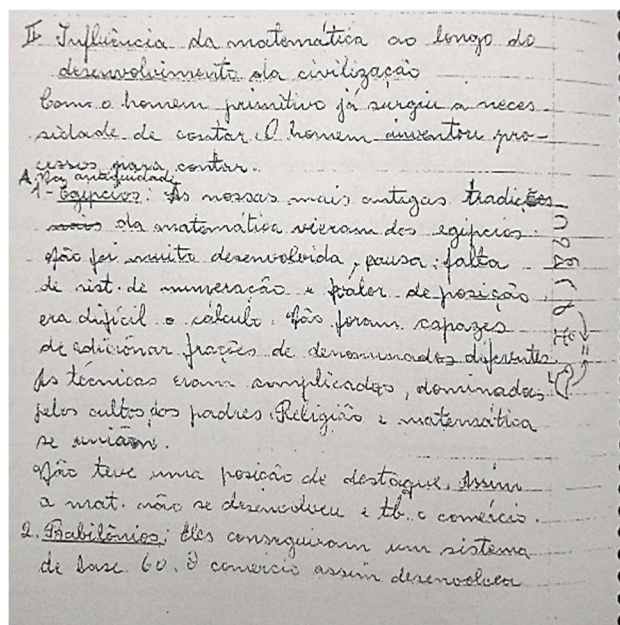 II Influência da matemática ao longo do
desenvolvimento da civilização
Com o homem primitivo já surgiu a neces-
sidade de contar. O homem inventou pro-
cessos para contar.
A. Na antiguidade
1- Egípcios: As nossas mais antigas tradições
da matemática vieram dos egípcios.
Não foi muito desenvolvida, falta
de sist. de numeração e valor de posição,
era difícil o cálculo. Não foram capazes
de adicionar frações de denominados diferentes.
As técnicas eram complicadas, dominadas
pelos cultos dos padres. Religião e matemática
se uniam.
Não teve uma posição de destaque. Assim
a mat. não se desenvolveu e tb. o comércio.
2. Babilônios: Eles conseguiram um sistema
de base 60. O comércio assim desenvolveu